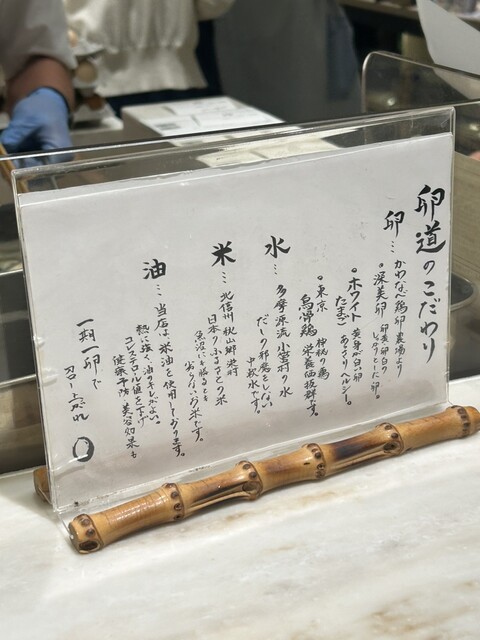 卵道のこだわり
卵… かわなべ鶏卵農場より
○深美卵 卵黄、卵白の
しっかりとした卵。
○ホワイト
たまご
黄身が白い卵
あっさりヘルシー。
○東京
烏骨鶏
神秘の鶏
栄養価抜群です。
水… 多摩源流 小菅村の水
だしの邪魔をしない
中軟水です。
米… 北信州 秋山郷 米村
日本のふるさとの米
魚沼にも劣るとも
おとらないお米です。
油… 当店は米油を使用しております。
熱に強く、油のキレがよい。
コレステロール値を下げ
健康予防 美容効果も
一期一卵で